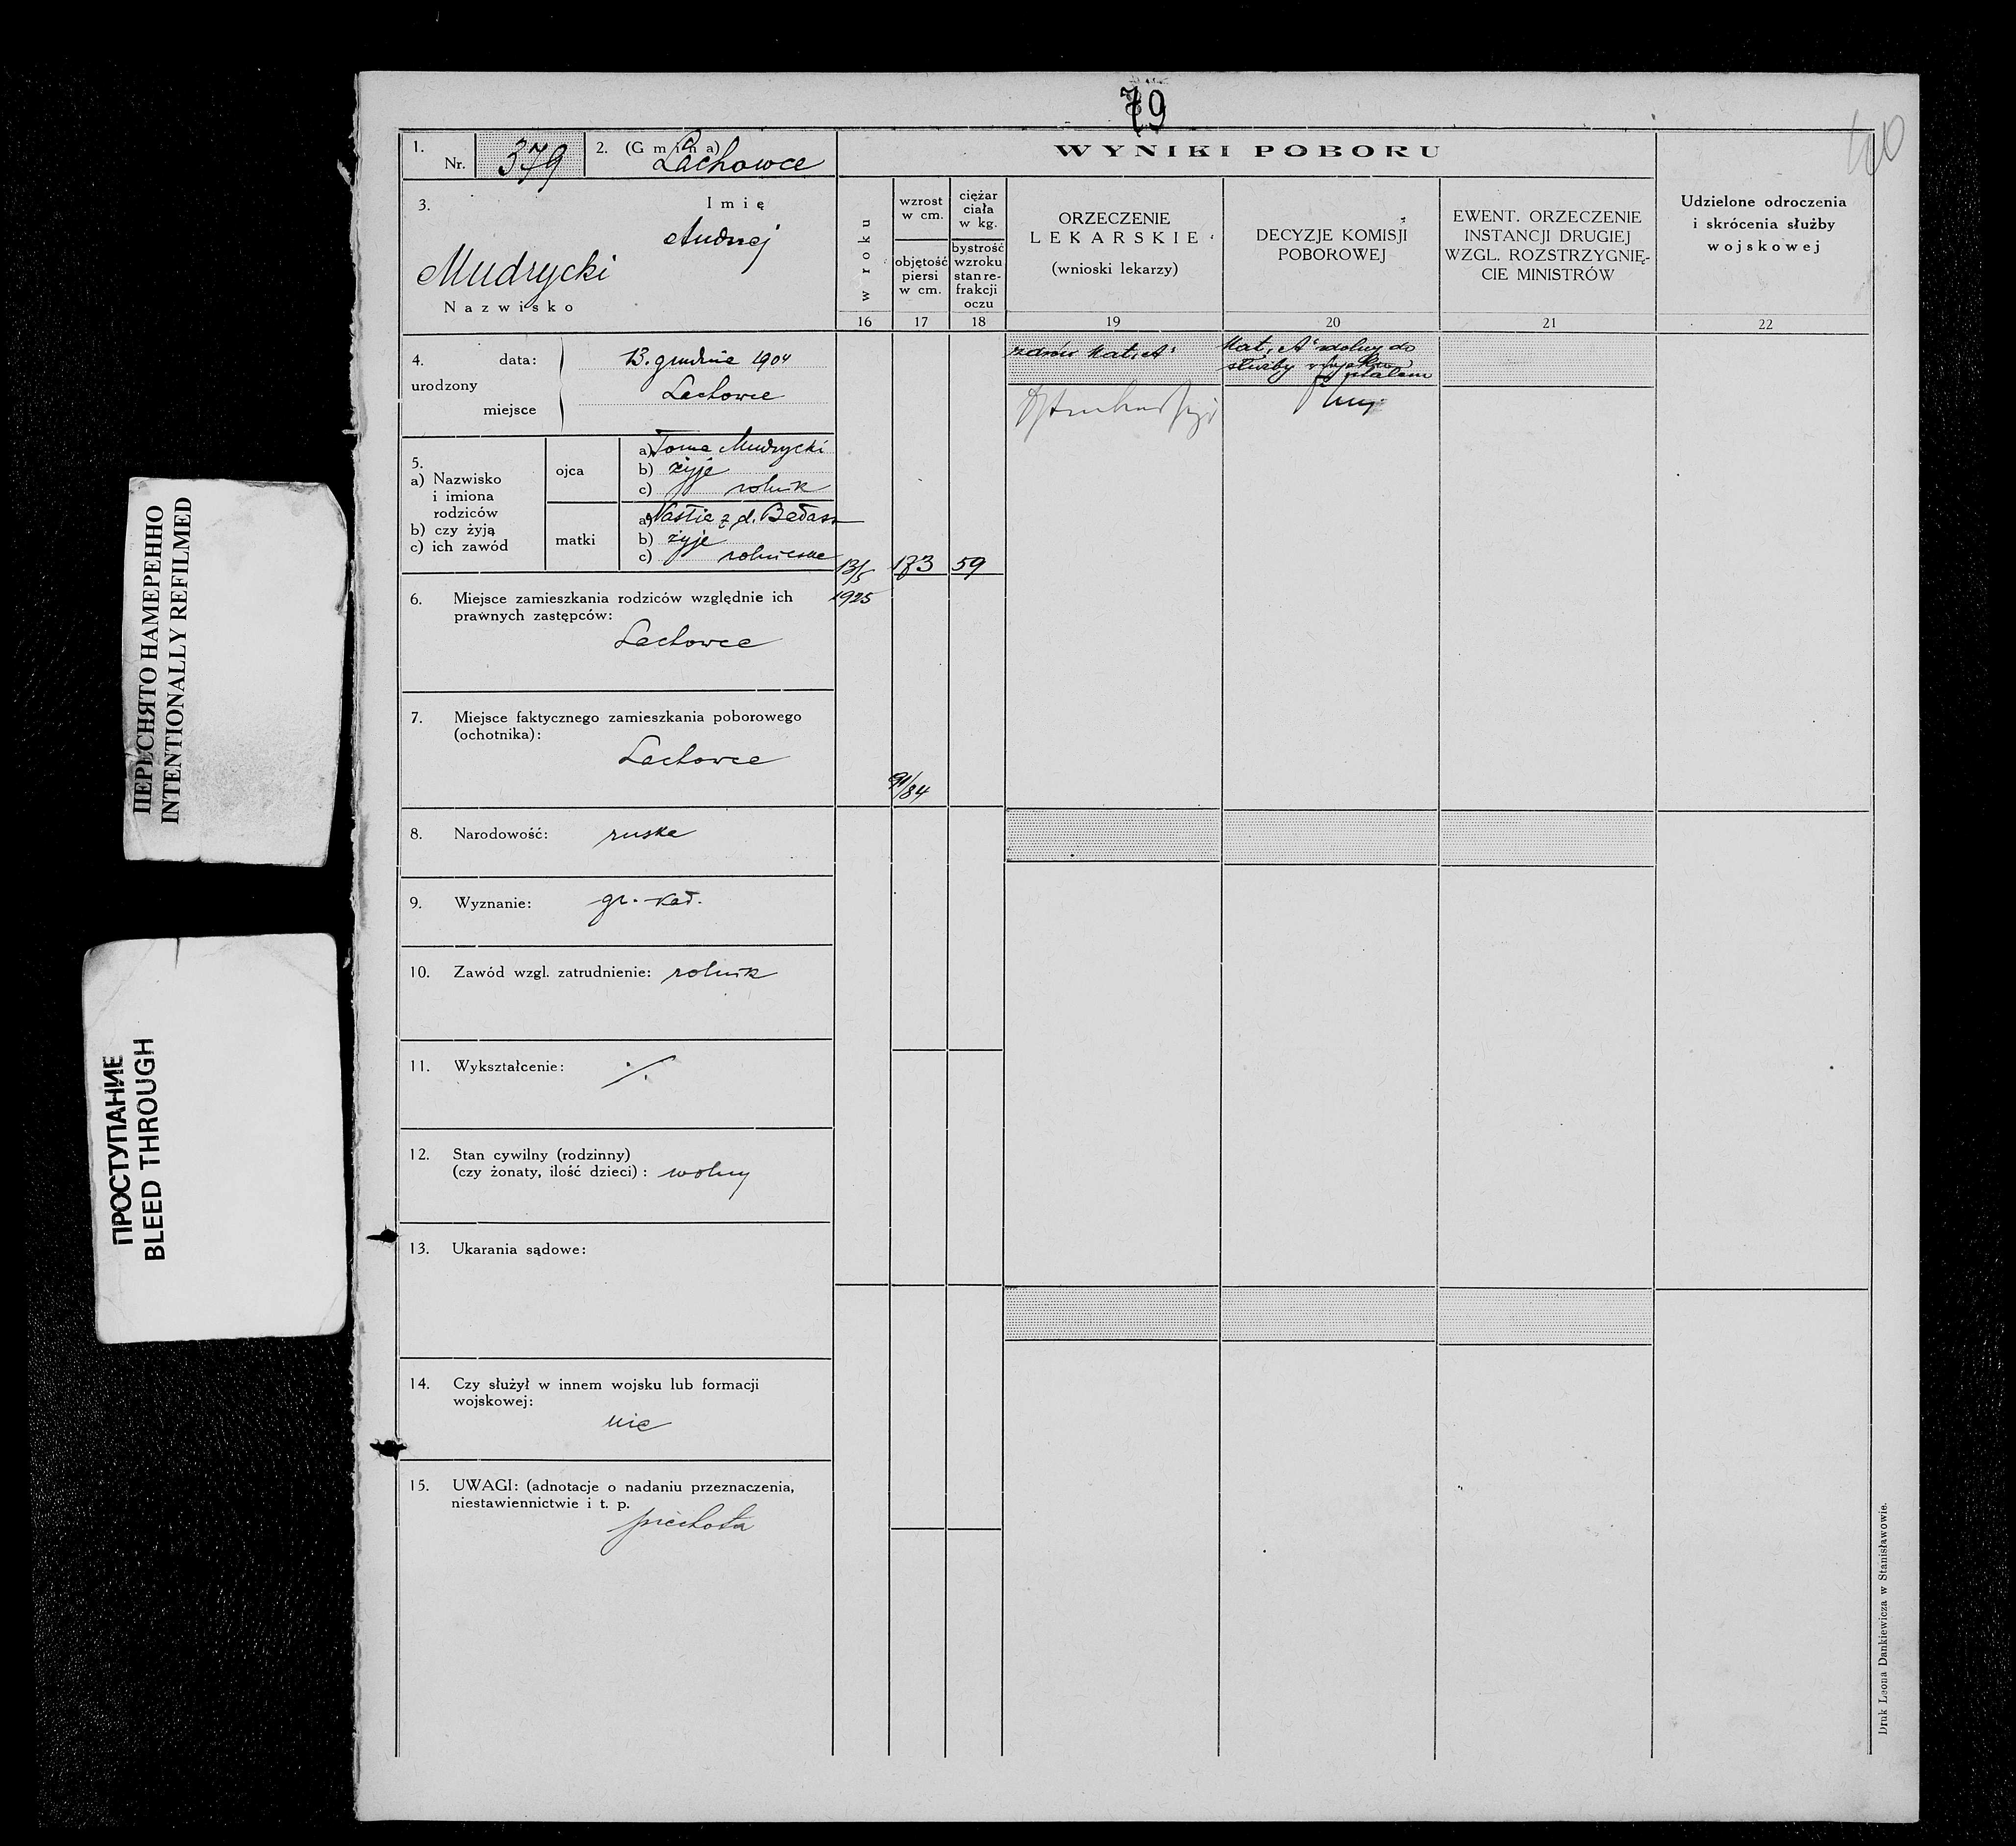 79
40
1. Nr. 379
2. (Gmina) Lachowce
WYNIKI POBORU
3. Imię
Andrzej
Mudrycki
Nazwisko
w roku
wzrost w cm.
objętość piersi w cm.
ciężar ciała w kg.
bystrość wzroku stan re-frakcji oczu
ORZECZENIE
LEKARSKIE
(wnioski lekarzy)
DECYZJE KOMISJI
POBOROWEJ
EWENT. ORZECZENIE
INSTANCJI DRUGIEJ
WZGL. ROZSTRZYGNIĘ-
CIE MINISTRÓW
Udzielone odroczenia
i skrócenia służby
wojskowej
16 17 18 19 20 21 22
4. urodzony
data: 13. grudnia 1904
miejsce Lachowce
zdrów Kat. „A"
Kat. „A" zdolny do
służby wojskowej
5.
a) Nazwisko
i imiona
rodziców
b) czy żyją
c) ich zawód
ojca
a) Toma Mudrycki
b) żyje
c) rolnik
matki
a) Nastia z d.
b) żyje
c)
13/5
1925
173
59
6. Miejsce zamieszkania rodziców względnie ich
prawnych zastępców:
Lachowce
7. Miejsce faktycznego zamieszkania poborowego
(ochotnika):
Lachowce
91/84
8. Narodowość: ruska
9. Wyznanie: gr.-kat.
10. Zawód wzgl. zatrudnienie: rolnik
11. Wykształcenie: ./.
12. Stan cywilny (rodzinny)
(czy żonaty, ilość dzieci): wolny
13. Ukarania sądowe:
14. Czy służył w innem wojsku lub formacji
wojskowej:
nie
15. UWAGI: (adnotacje o nadaniu przeznaczenia,
niestawiennictwie i t. p.
piechota
Druk Leona Dankiewicza w Stanisławowie.
ПЕРЕСНЯТО НАМЕРЕННО
INTENTIONALLY REFILMED
ПРОСТУПАНИЕ
BLEED THROUGH